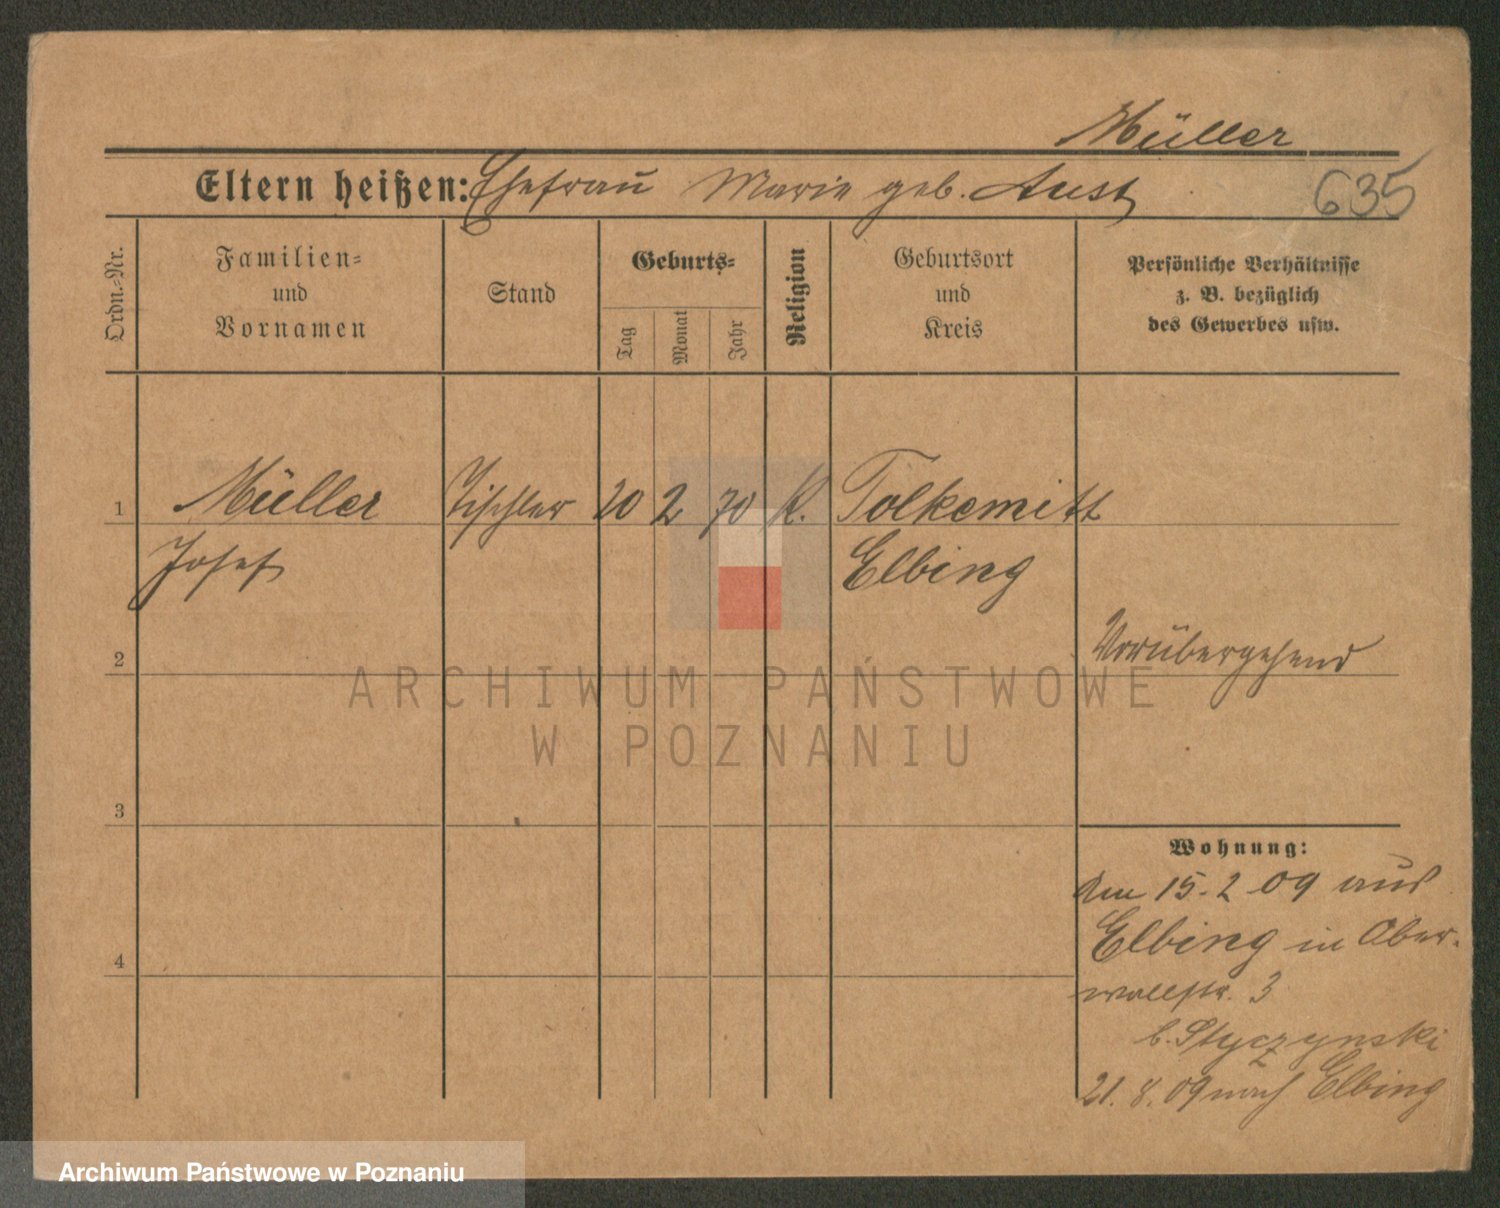 Müller
Eltern heißen: Ehefrau Marie geb. Aust
635
Ordn.-Nr.
Familien-
und
Vornamen
Stand
Geburts-
Tag
Monat
Jahr
Religion
Geburtsort
und
Kreis
Persönliche Verhältnisse
z. B. bezüglich
des Gewerbes usw.
1 Müller Tischler 20 2 70 K. Tolkemitt
Josef Elbing
2 Vorübergehend
ARCHIWUM PAŃSTWOWE
W POZNANIU
3
Wohnung:
Am 15.2 09 aus
Elbing in Ober-
4
wallstr. 3
b. Styczynski
21. 8. 09 nach Elbing
Archiwum Państwowe w Poznaniu